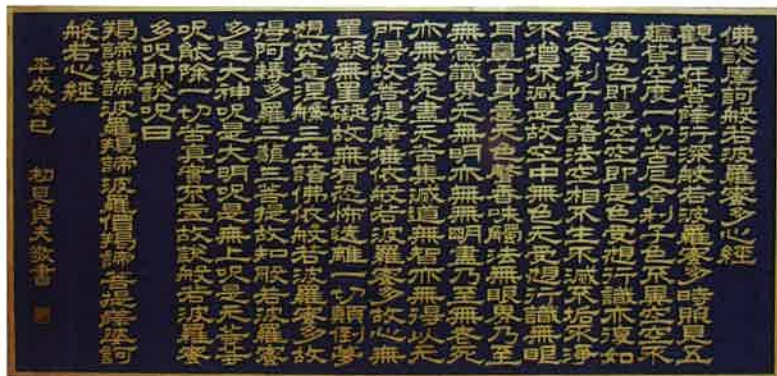 佛說摩訶般若波羅蜜多心經
觀自在菩薩行深般若波羅蜜多時照見五
蘊皆空度一切苦厄舍利子色不異空空不
異色色即是空空即是色受想行識亦復如
是舍利子是諸法空相不生不滅不垢不淨
不增不減是故空中無色无受想行識無眼
耳鼻舌身意无色聲香味觸法無眼界乃至
無意識界无無明亦無無明盡乃至無老死
亦無老死盡无苦集滅道無智亦無得以无
所得故菩提薩埵依般若波羅蜜多故心無
罣礙無罣礙故無有恐怖遠離一切顛倒夢
想究竟涅槃三世諸佛依般若波羅蜜多故
得阿耨多羅三藐三菩提故知般若波羅蜜
多是大神呪是大明呪是無上呪是无等等
呪能除一切苦真實不虛故說般若波羅蜜
多呪即說呪曰
羯諦羯諦波羅羯諦波羅僧羯諦菩提薩婆訶
般若心經
平成癸巳 初見貞夫敬書